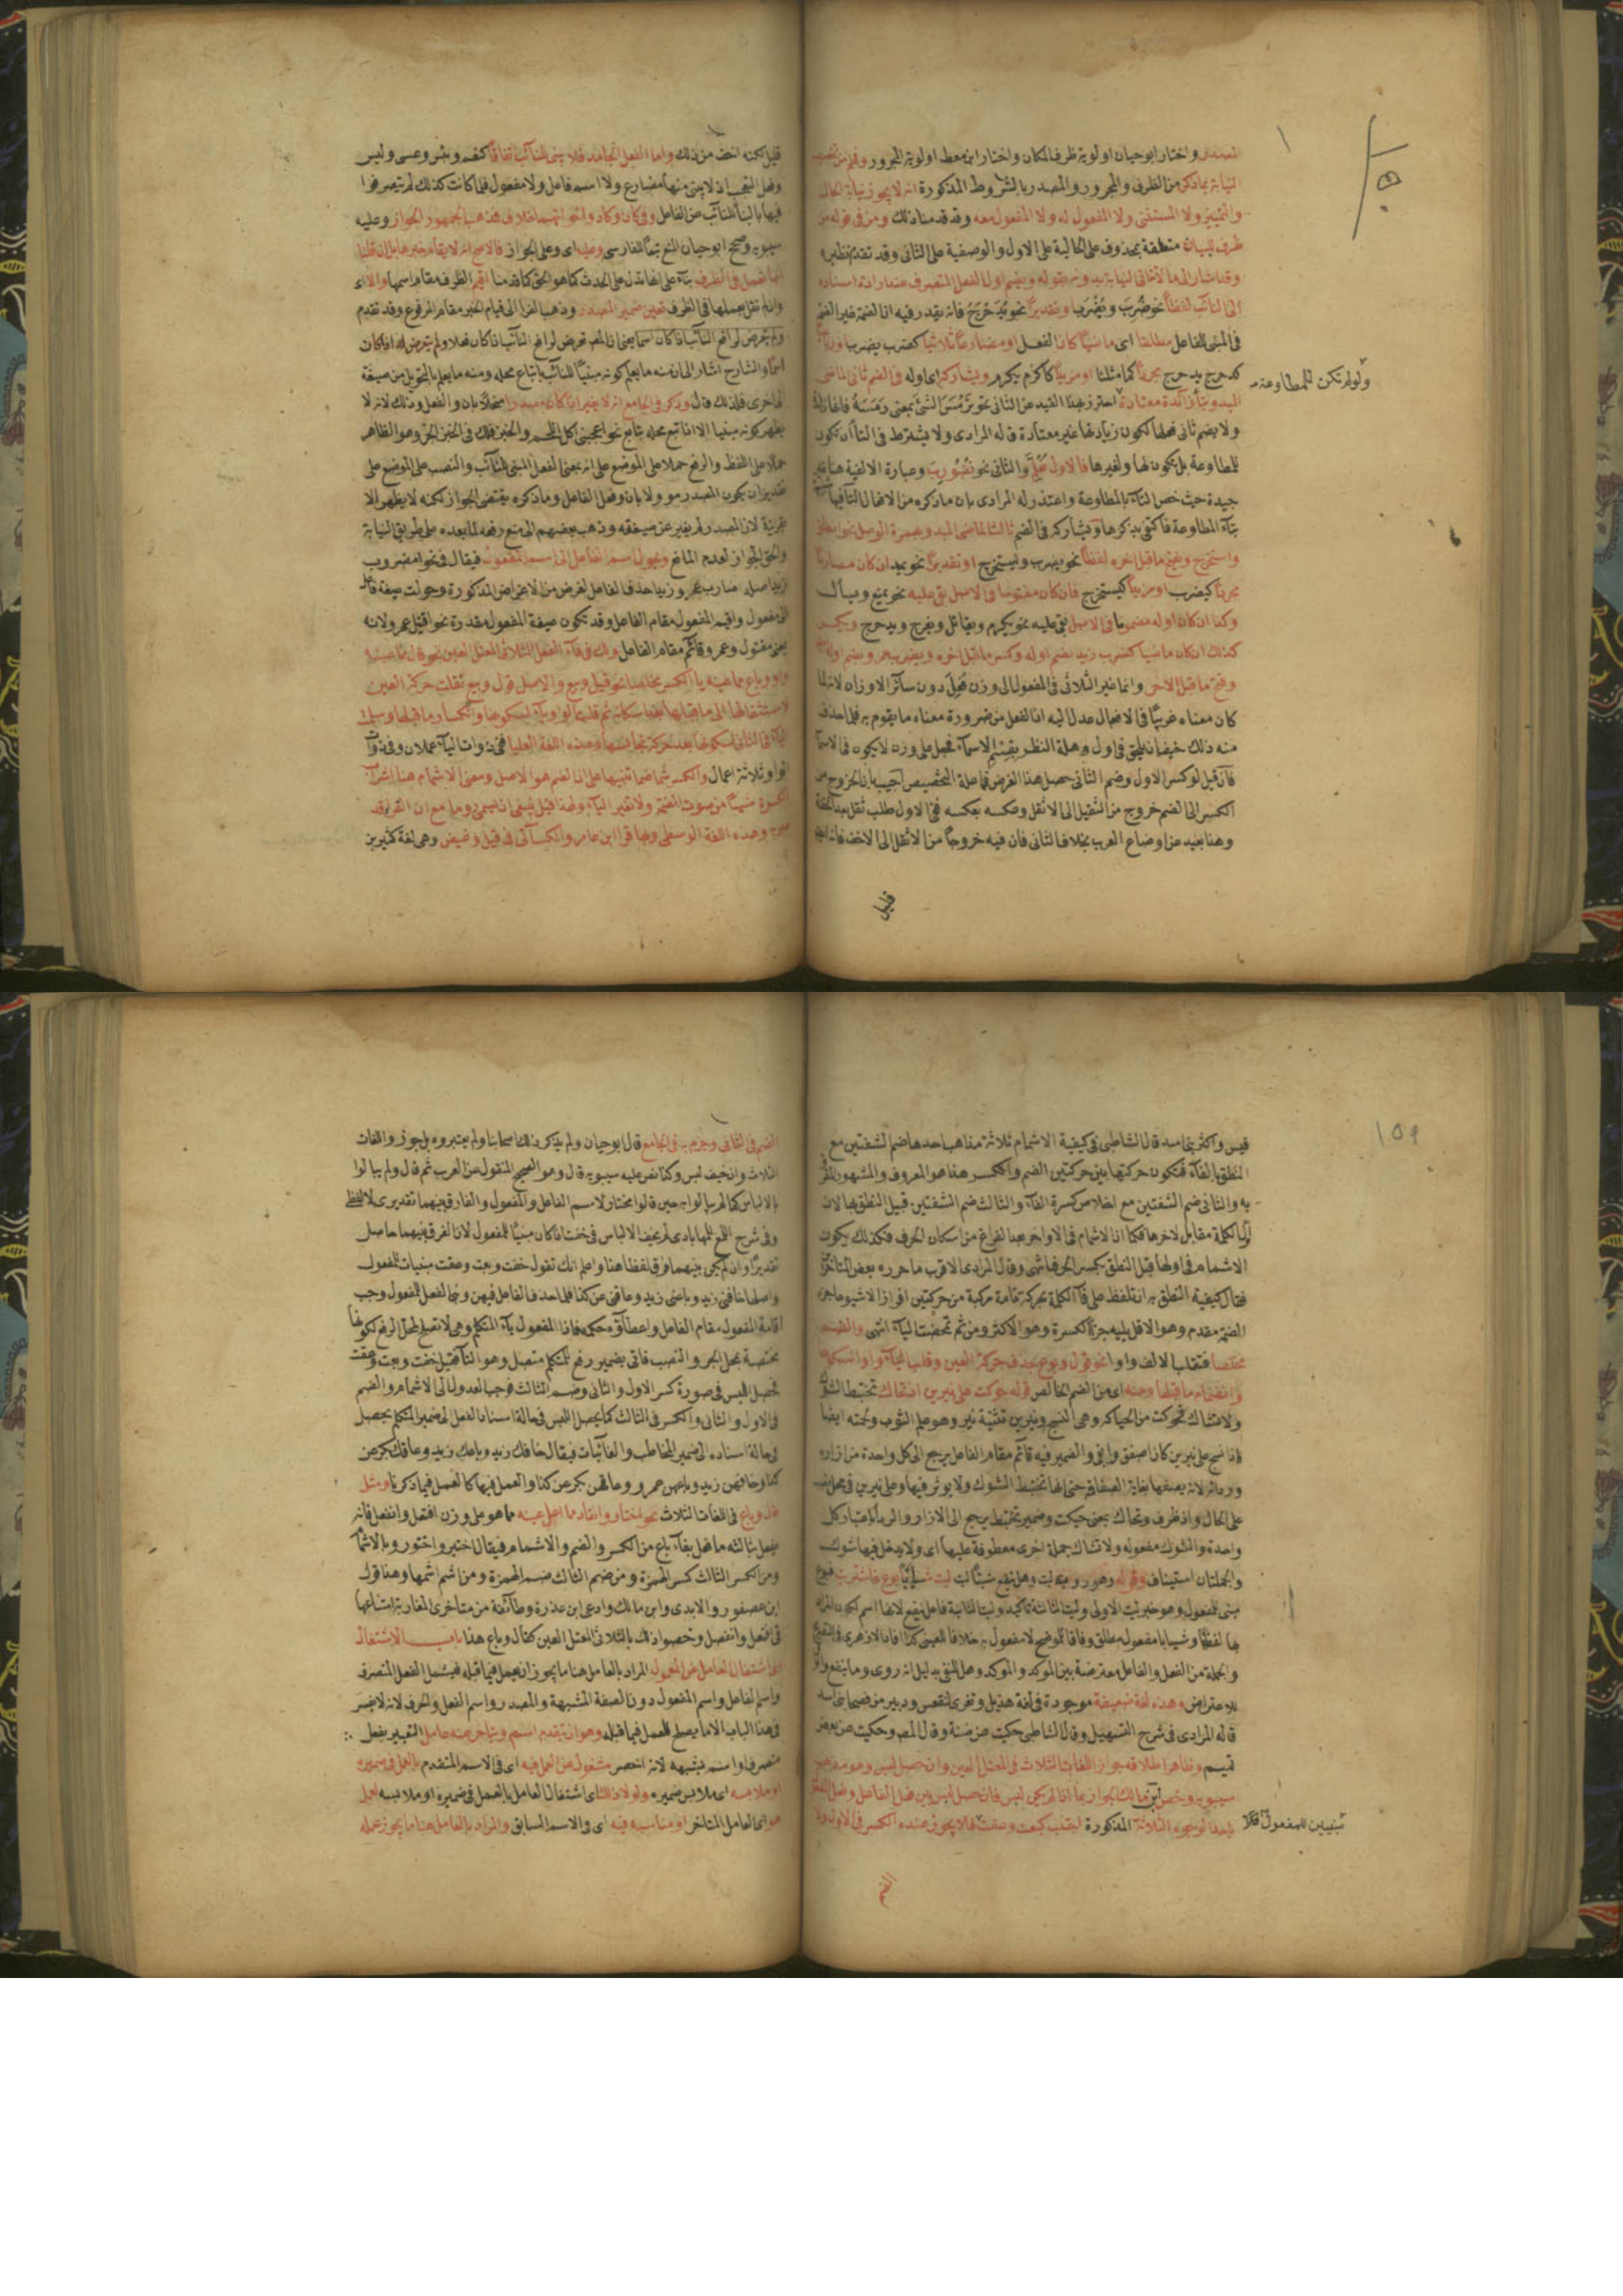 المصدر واختار ابوحيان اولوية ظرف المكان واختار ابن معط اولوية المجرور وفهم من تخصيصه
النيابة بما ذكر من الظرف والمجرور والمصدر بالشروط المذكورة انه لا يجوز نيابة الحال
والتمييز ولا المستثنى ولا المفعول له ولا المفعول معه وقد قدمنا ذلك ومن في قوله من
ظرف للبيان متعلقة بمحذوف على الحالية على الاول والوصفية على الثاني وقد تقدم نظيره
الى النائب لفظا نحو ضُرِبَ ويُضْرَب او تقديرا نحو يُدَحْرَجُ فانه يقدر فيه ان الضمة غير الضمة
في المبني للفاعل مطلقا اى ماضيا كان الفعل او مضارعا ثلاثيا كضرب يضرب
كدحرج يدحرج مجردا كما مثلنا او مزيدا كاكرم يكرم ويشاركه اى اوله فى الضم ثانى الماضى
ولو لم تكن للمطاوعة
المبدوء بتاء زائدة معتادة احترز بهذا القيد عن الثانى نحو تَرْمَسَ الشئ بمعنى رَمَسَهُ
ولا يضم ثانى فعلها لكون زيادتها غير معتادة قاله المرادى ولا يشترط فى التاء ان تكون
للمطاوعة بل تكون لها ولغيرها فالاول والثانى نحو تُضُورِبَ وعبارة الالفية هنا غير
جيدة حيث خص التاء بالمطاوعة واعتذر له المرادى بان ما ذكره من الافعال
بتاء المطاوعة فاكتفى بذكرها ويشاركه فى الضم ثالث الماضى المبدوء بهمزة الوصل نحو انطلق
واستخرج ويفتح ما قبل اخره لفظا نحو يضرب ويستخرج او تقديرا نحو يميد ان كان مضارعا
مجردا كيضرب او مزيدا كيستخرج فان كان مفتوحا فى الاصل بقى عليه نحو يمنع ويسأل
وكذا ان كان اوله مضموما فى الاصل بقى عليه نحو يكرم ويقاتل ويفرح ويدحرج ويكسر
كذلك ان كان ماضيا كضرب زيد بضم اوله وكسر ما قبل اخره ويضرب عمرو بضم اوله
وفتح ما قبل الاخر وانما غير الثلاثى فى المفعول الى وزن فُعِلَ دون سائر الاوزان لانه لما
كان معناه غريبا فى الافعال عدل اليه اذ الفعل من ضرورة معناه ما يقوم به فلما حذف
منه ذلك خيف ان يلحق فى اول وهلة النظر بقسم الاسماء فجعل على وزن لا يكون فى الاسماء
فان قيل لو كسر الاول وضم الثانى حصل هذا الغرض فما علة التخصيص اجيب بان الخروج من
الكسر الى الضم خروج من الثقيل الى الاثقل وعكسه بعكسه ففى الاول طلب ثقل بعد الخفة
وهذا بعيد عن اوضاع العرب بخلاف الثانى فان فيه خروجا من الاثقل الى الاخف فانه
قليل
قليل لكنه اخف من ذلك واما الفعل الجامد فلا يبنى للنائب اتفاقا كنعم وبئس وعسى وليس
وفعل التعجب اذ لا يبنى منها مضارع ولا اسم فاعل ولا مفعول فلما كانت كذلك لم يتصرفوا
فيها بالبناء للنائب عن الفاعل وفى كان وكاد واخواتهما خلاف فمذهب الجمهور الجواز وعليه
سيبويه وصحح ابوحيان المنع تبعا للفارسى وعليه اى وعلى الجواز فالاصح انه لا يقام خبرها بل ان قلنا
انها تعمل فى الظرف بناء على انها تدل على الحدث كما هو الحق كما قدمنا اقيم الظرف مقام اسمها والا اى
وان لم نقل بعملها فى الظرف تعين ضمير المصدر وذهب الفرا الى قيام الخبر مقام المرفوع وقد تقدم
ولم يتعرض لرافع النائب اذا كان اسما يعنى ان المص تعرض لرافع النائب اذا كان فعلا ولم يتعرض له اذا كان
اسما والشارح اشار الى ان منه ما يعلم كونه مبنيا للنائب باتباع محله ومنه ما يعلم بالتحويل من صيغة
الى اخرى فلذلك قال وذكر فى الجامع انه لا يغير اذا كان مصدرا منحلا بان والفعل وذلك لانه لا
يظهر كونه مبنيا الا اذا اتبع محله بتابع نحو اعجبنى اكل اللحم والخبز فلك فى الخبز الجر وهو الظاهر
حملا على اللفظ والرفع حملا على الموضع على انه بمعنى الفعل المبنى للنائب والنصب على الموضع على
تقدير ان يكون المصدر موولا بان وفعل الفاعل وما ذكره يقتضى الجواز لكنه لا يظهر الا
بقرينة لان المصدر لم يغير عن صيغته وذهب بعضهم الى منع رفعه لما بعده على طريق النيابة
والحق الجواز لعدم المانع ويحول اسم الفاعل الى اسم المفعول فيقال فى نحو امضروب
زيد اصله ضارب عمرو زيدا حذف الفاعل لغرض من الاغراض المذكورة وحولت صيغة فاعل
الى مفعول واقيم المفعول مقام الفاعل وقد تكون صيغة المفعول مقدرة نحو اقتيل عمرو لانه
بمعنى مقتول وعمرو قائم مقام الفاعل ولك فى فاء الفعل الثلاثى المعتل العين نحو قال مما عينه
واو وباع مما عينه يا الكسر مخلصا نحو قيل وبيع والاصل قول وبيع نقلت حركة العين
لاستثقالها الى ما قبلها بعد اسكانه ثم قلبت الواو ياء لسكونها وانكسار ما قبلها وسلمت
الياء فى الثانى لسكونها بعد حركة تجانسها وهذه اللغة العليا ففى ذوات الياء عملان وفى ذوات
الواو ثلاثة اعمال والكسر مشما ضما تنبيها على ان الضم هو الاصل ومعنى الاشمام هنا اشراب
الكسرة شيئا من صوت الضم ولا تغير الياء ولهذا قيل ينبغى ان يسمى روما مع ان القراء قد
وهذه اللغة الوسطى وبها قرا ابن عامر والكسائى فى قيل وغيض وهى لغة كثير بن
١٥٩
قيس واكثر بنى اسد قال الشاطبى فى كيفية الاشمام ثلاثة مذاهب احدها ضم الشفتين مع
النطق بالفاء فتكون حركتها بين حركتين الضم والكسر هذا هو المعروف والمشهور المقر
به والثانى ضم الشفتين مع اخلاص كسرة الفاء والثالث ضم الشفتين قبيل النطق بها لان
اول الكلمة مقابل لاخرها فكما ان الاشمام فى الاواخر بعد الفراغ من اسكان الحرف فكذلك يكون
الاشمام فى اولها قبل النطق بكسر الحرف انتهى وقال المرادى الاقرب ما حرره بعض المتاخرين
فقال كيفية النطق به ان تلفظ على فاء الكلمة بحركة تامة مركبة من حركتين افرازا لا شيوعا جزء
الضمة مقدم وهو الاقل يليه جزء الكسرة وهو الاكثر ومن ثم تمحضت الياء انتهى والضم
مخلصا فتقلب الالف واوا نحو قول وبوع بحذف حركة العين وقلب الياء واوا لسكونها
وانضمام ما قبلها ومنه اى من الضم الخالص قوله حوكت على نيرين اذ تحاك تختبط الشوك
ولا تشاك فحوكت من الحياكة وهى النسج ونيرين تثنية نير وهو علم الثوب ولحمته ايضا
فاذا نسج على نيرين كان اصفق وابقى والضمير فيه قائم مقام الفاعل يرجع الى كل واحدة من ازاره
وردائه لانه يصفها بغاية الصفاقة حتى انها تختبط الشوك ولا يوثر فيها وعلى نيرين فى محل نصب
على الحال واذ ظرف وتحاك بمعنى حيكت وضمير تختبط يرجع الى الازار والرداء باعتبار كل
واحدة والشوك مفعوله ولا تشاك جملة اخرى معطوفة عليها اى ولا يدخل فيها شوك
والجملتان استيناف وقوله وهو رؤبة ليت وهل ينفع شيئا ليت ليت شبابا بوع فاشتريت فبوع
مبنى للمفعول وهو خبر ليت الاولى وليت الثالثة تاكيد وليت الثانية فاعل ينفع لانها اسم
بها لفظها وشيا با مفعول مطلق وفاقا للموضح لا مفعول به خلافا للعينى كذا افاد الازهرى
والجملة من الفعل والفاعل معترضة بين الموكد والموكد وهل للنفى بدليل انه روى وما ينفع
للاعتراض وهذه لغة ضعيفة موجودة فى لغة هذيل وتعزى لفقعس ودبير من فصحا بنى اسد
قاله المرادى فى شرح التسهيل وقال الشاطبى حكيت عن ضبة وقال المص وحكيت عن بعض
تميم وظاهر اطلاقه جواز اللغات الثلاث فى المعتل العين وان حصل لبس وهو مذهب
سيبويه وخص ابن مالك الجواز بما اذا لم يكن لبس فان حصل لبس بين فعل الفاعل وفعل المفعول
باحد الوجوه الثلاثة المذكورة اجتنب كبعت وعقت فلا يجوز عنده الكسر فى الاول ولا
مبنيين للمفعول
الضم
الضم فى الثانى وجزم به فى الجامع قال ابوحيان ولم يذكر ذلك اصحابنا ولم يعتبروه بل جوزوا اللغات
الثلاث وان خيف لبس وكذا نص عليه سيبويه قال وهو الصحيح المنقول عن العرب ثم قال ولم يبالوا
بالالباس كما لم يبالوا به حين قالوا مختار لاسم الفاعل والمفعول والفارق بينهما تقديرى لا لفظى
وفى شرح اللمع للمهابادى لم يخيف الالباس فى خفت اذا كان مبنيا للمفعول لان الفرق بينهما حاصل
تقديرا وان لم يكن بينهما فرق لفظا هذا واعلم انك تقول خفت وبعت وعقت مبنيات للمفعول
واصلها خافنى زيد وباعنى زيد وعاقنى عن كذا فلما حذف الفاعل فيهن وبنى الفعل للمفعول وجب
اقامة المفعول مقام الفاعل واعطاؤه حكمه فاذا المفعول ياء المتكلم وهى لا تصلح لمحل الرفع لكونها
مختصة بمحل الجر والنصب فاتى بضمير رفع للمتكلم متصل وهو التاء فقيل خفت وبعت وعقت
فحصل اللبس فى صورة كسر الاول والثانى وضم الثالث فوجب العدول الى الاشمام والضم
فى الاول والثانى والكسر فى الثالث كما يحصل اللبس فى حالة اسناد الفعل الى ضمير المتكلم يحصل
فى حالة اسناده الى ضمير المخاطب والغائبات فيقال خافك زيد وباعك زيد وعاقك بكر عن
كذا وخافهن زيد وباعهن عمرو وعاقهن بكر عن كذا والعمل فيها كالعمل فيما ذكرنا ومثل
قال وباع فى اللغات الثلاث نحو اختار وانقاد مما اعل عينه مما هو على وزن افتعل وانفعل فانه
يفعل بثالثه ما فعل بفاء باع من الكسر والضم والاشمام فيقال اختير واختور وبالاشمام
ومن الكسر الثالث كسر الهمزة ومن ضم الثالث ضم الهمزة ومن اشم اشمها وهذا قول
ابن عصفور والابدى وابن مالك وادعى ابن عذرة وطائفة من متاخرى المغاربة امتناعها
فى افتعل وانفعل وخصوا ذلك بالثلاثى المعتل العين كقال وباع هذا باب الاشتغال
اى اشتغال العامل عن المعمول المراد بالعامل هنا ما يجوز ان يعمل فيما قبله فيشمل الفعل المتصرف
واسم الفاعل واسم المفعول دون الصفة المشبهة والمصدر واسم الفعل والحرف لانه لا يفسر
فى هذا الباب الا ما يصلح للعمل فيما قبله وهو ان يتقدم اسم ويتاخر عنه عامل التعبير بفعل
متصرف او اسم يشبهه لانه اخصر مشغول عن العمل فيه اى فى الاسم المتقدم بالعمل فى ضميره
او ملابسه اى ملابس ضميره ولولا ذلك اى اشتغال العامل بالعمل فى ضميره او ملابسه لعمل
هو اى العامل المتاخر او مناسبه فيه اى فى الاسم السابق والمراد بالعامل هنا ما يجوز عمله